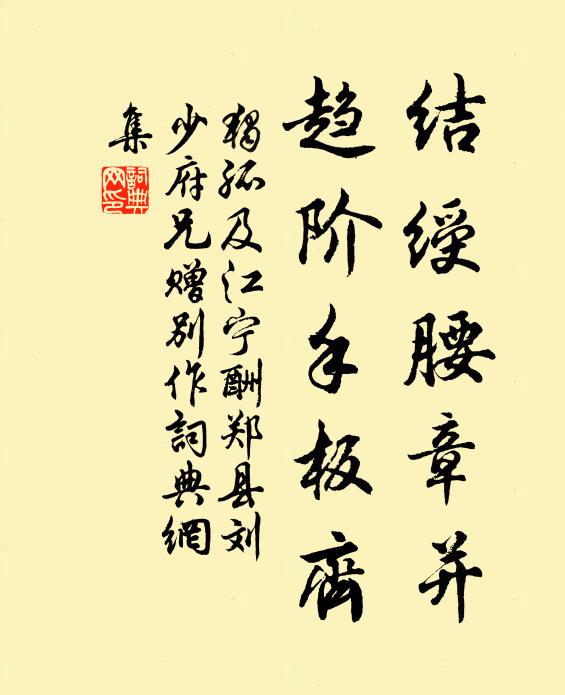 结绶腰章并
趋阶手板齐
独孤及江宁酬郑县刘
少府兄赠别作词典網
集
詞典
网印